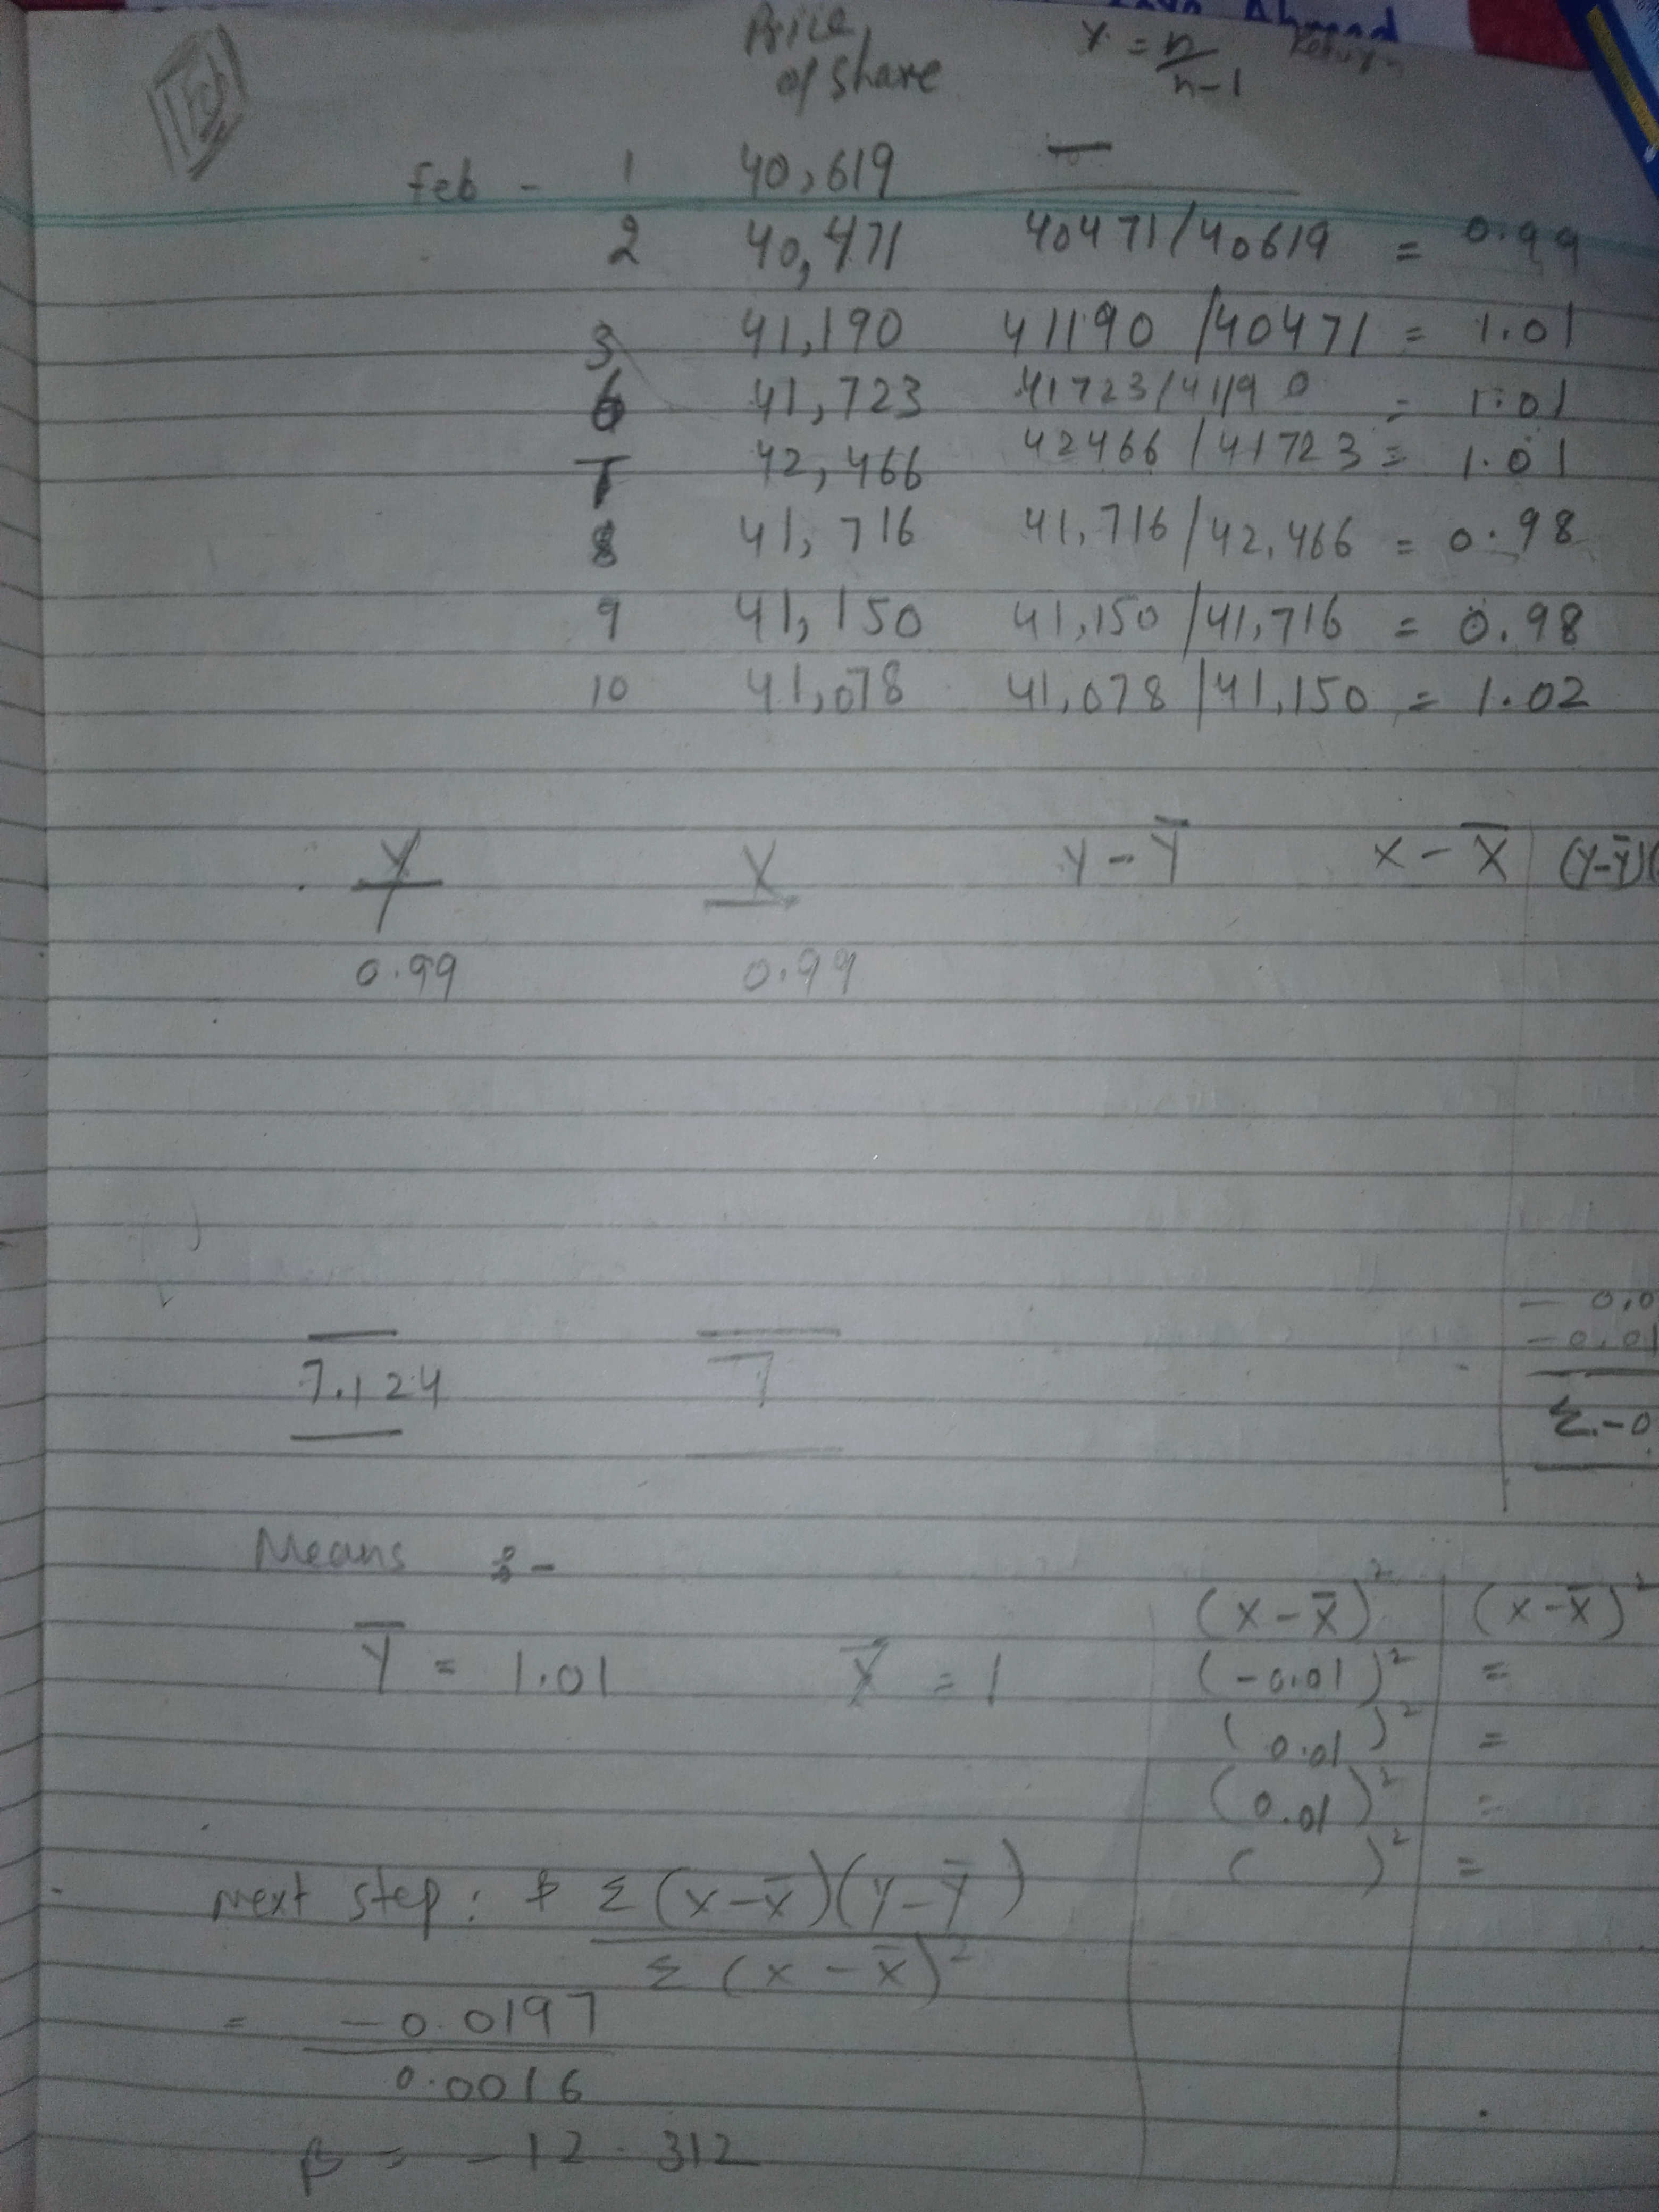 Ahmad
Price of share
Y = n/n-1
Feb
Feb - 1 40,619 —
2 40,471 40471/40619 = 0.99
3 41,190 41190/40471 = 1.01
6 41,723 41723/41190 = 1.01
7 42,466 42466/41723 = 1.01
8 41,716 41,716/42,466 = 0.98
9 41,150 41,150/41,716 = 0.98
10 41,078 41,078/41,150 = 1.02
Y X Y-Y̅ X-X̅ (Y-Y̅)(
0.99 0.99
- 0.0
-0.01
7.124 7
Σ.-0
Means :-
(X-X̅)² (X-X̅)²
Y̅ = 1.01 X̅ = 1 (-0.01)² =
(0.01)² =
(0.01)² =
Next step: Σ(X-X̅)(Y-Y̅) ( )² =
Σ(X-X̅)²
= -0.0197
0.0016
β = -12.312